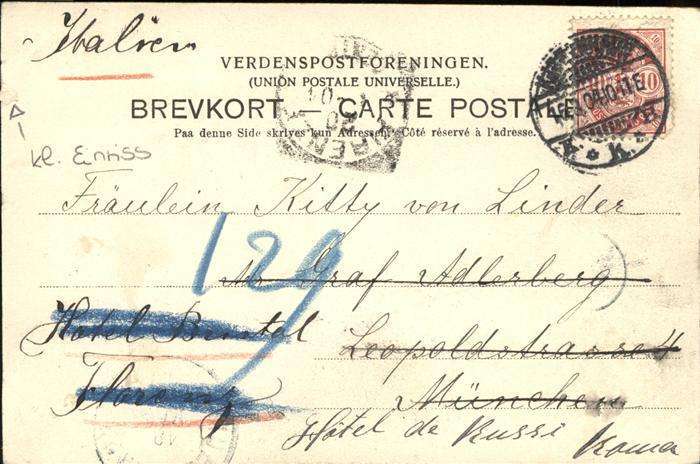 Italien
VERDENSPOSTFORENINGEN.
(UNION POSTALE UNIVERSELLE.)
BREVKORT — CARTE POSTA
Paa denne Side skrives kun Adressen. Côté réservé à l'adresse.
10
K.
kl. Enriss
Fräulein Kitty von Linder
129
Graf Adlerberg
Hotel Bristol
Leopoldstrasse 4
Florenz
München
Hôtel de Russi
Roma